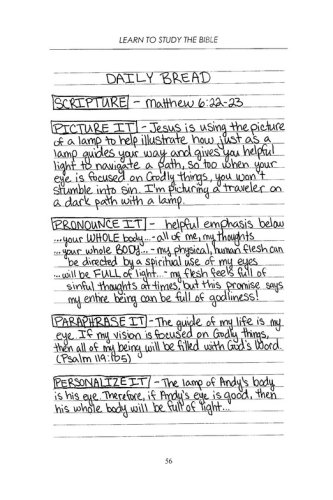 LEARN TO STUDY THE BIBLE
DAILY BREAD
SCRIPTURE - Matthew 6:22-23
PICTURE IT - Jesus is using the picture
of a lamp to help illustrate how just as a
lamp guides your way and gives you helpful
light to navigate a path, so too when your
eye is focused on Godly things, you won't
stumble into sin. I'm picturing a traveler on
a dark path with a lamp.
PRONOUNCE IT - helpful emphasis below
...your WHOLE body... - all of me, my thoughts
...your whole BODY... - my physical, human flesh can
be directed by a spiritual use of my eyes
...will be FULL of light... - my flesh feels full of
sinful thoughts at times, but this promise says
my entire being can be full of godliness!
PARAPHRASE IT - The guide of my life is my
eye. If my vision is focused on Godly things,
then all of my being will be filled with God's Word.
(Psalm 119:105)
PERSONALIZE IT - The lamp of Andy's body
is his eye. Therefore, if Andy's eye is good, then
his whole body will be full of light...
56